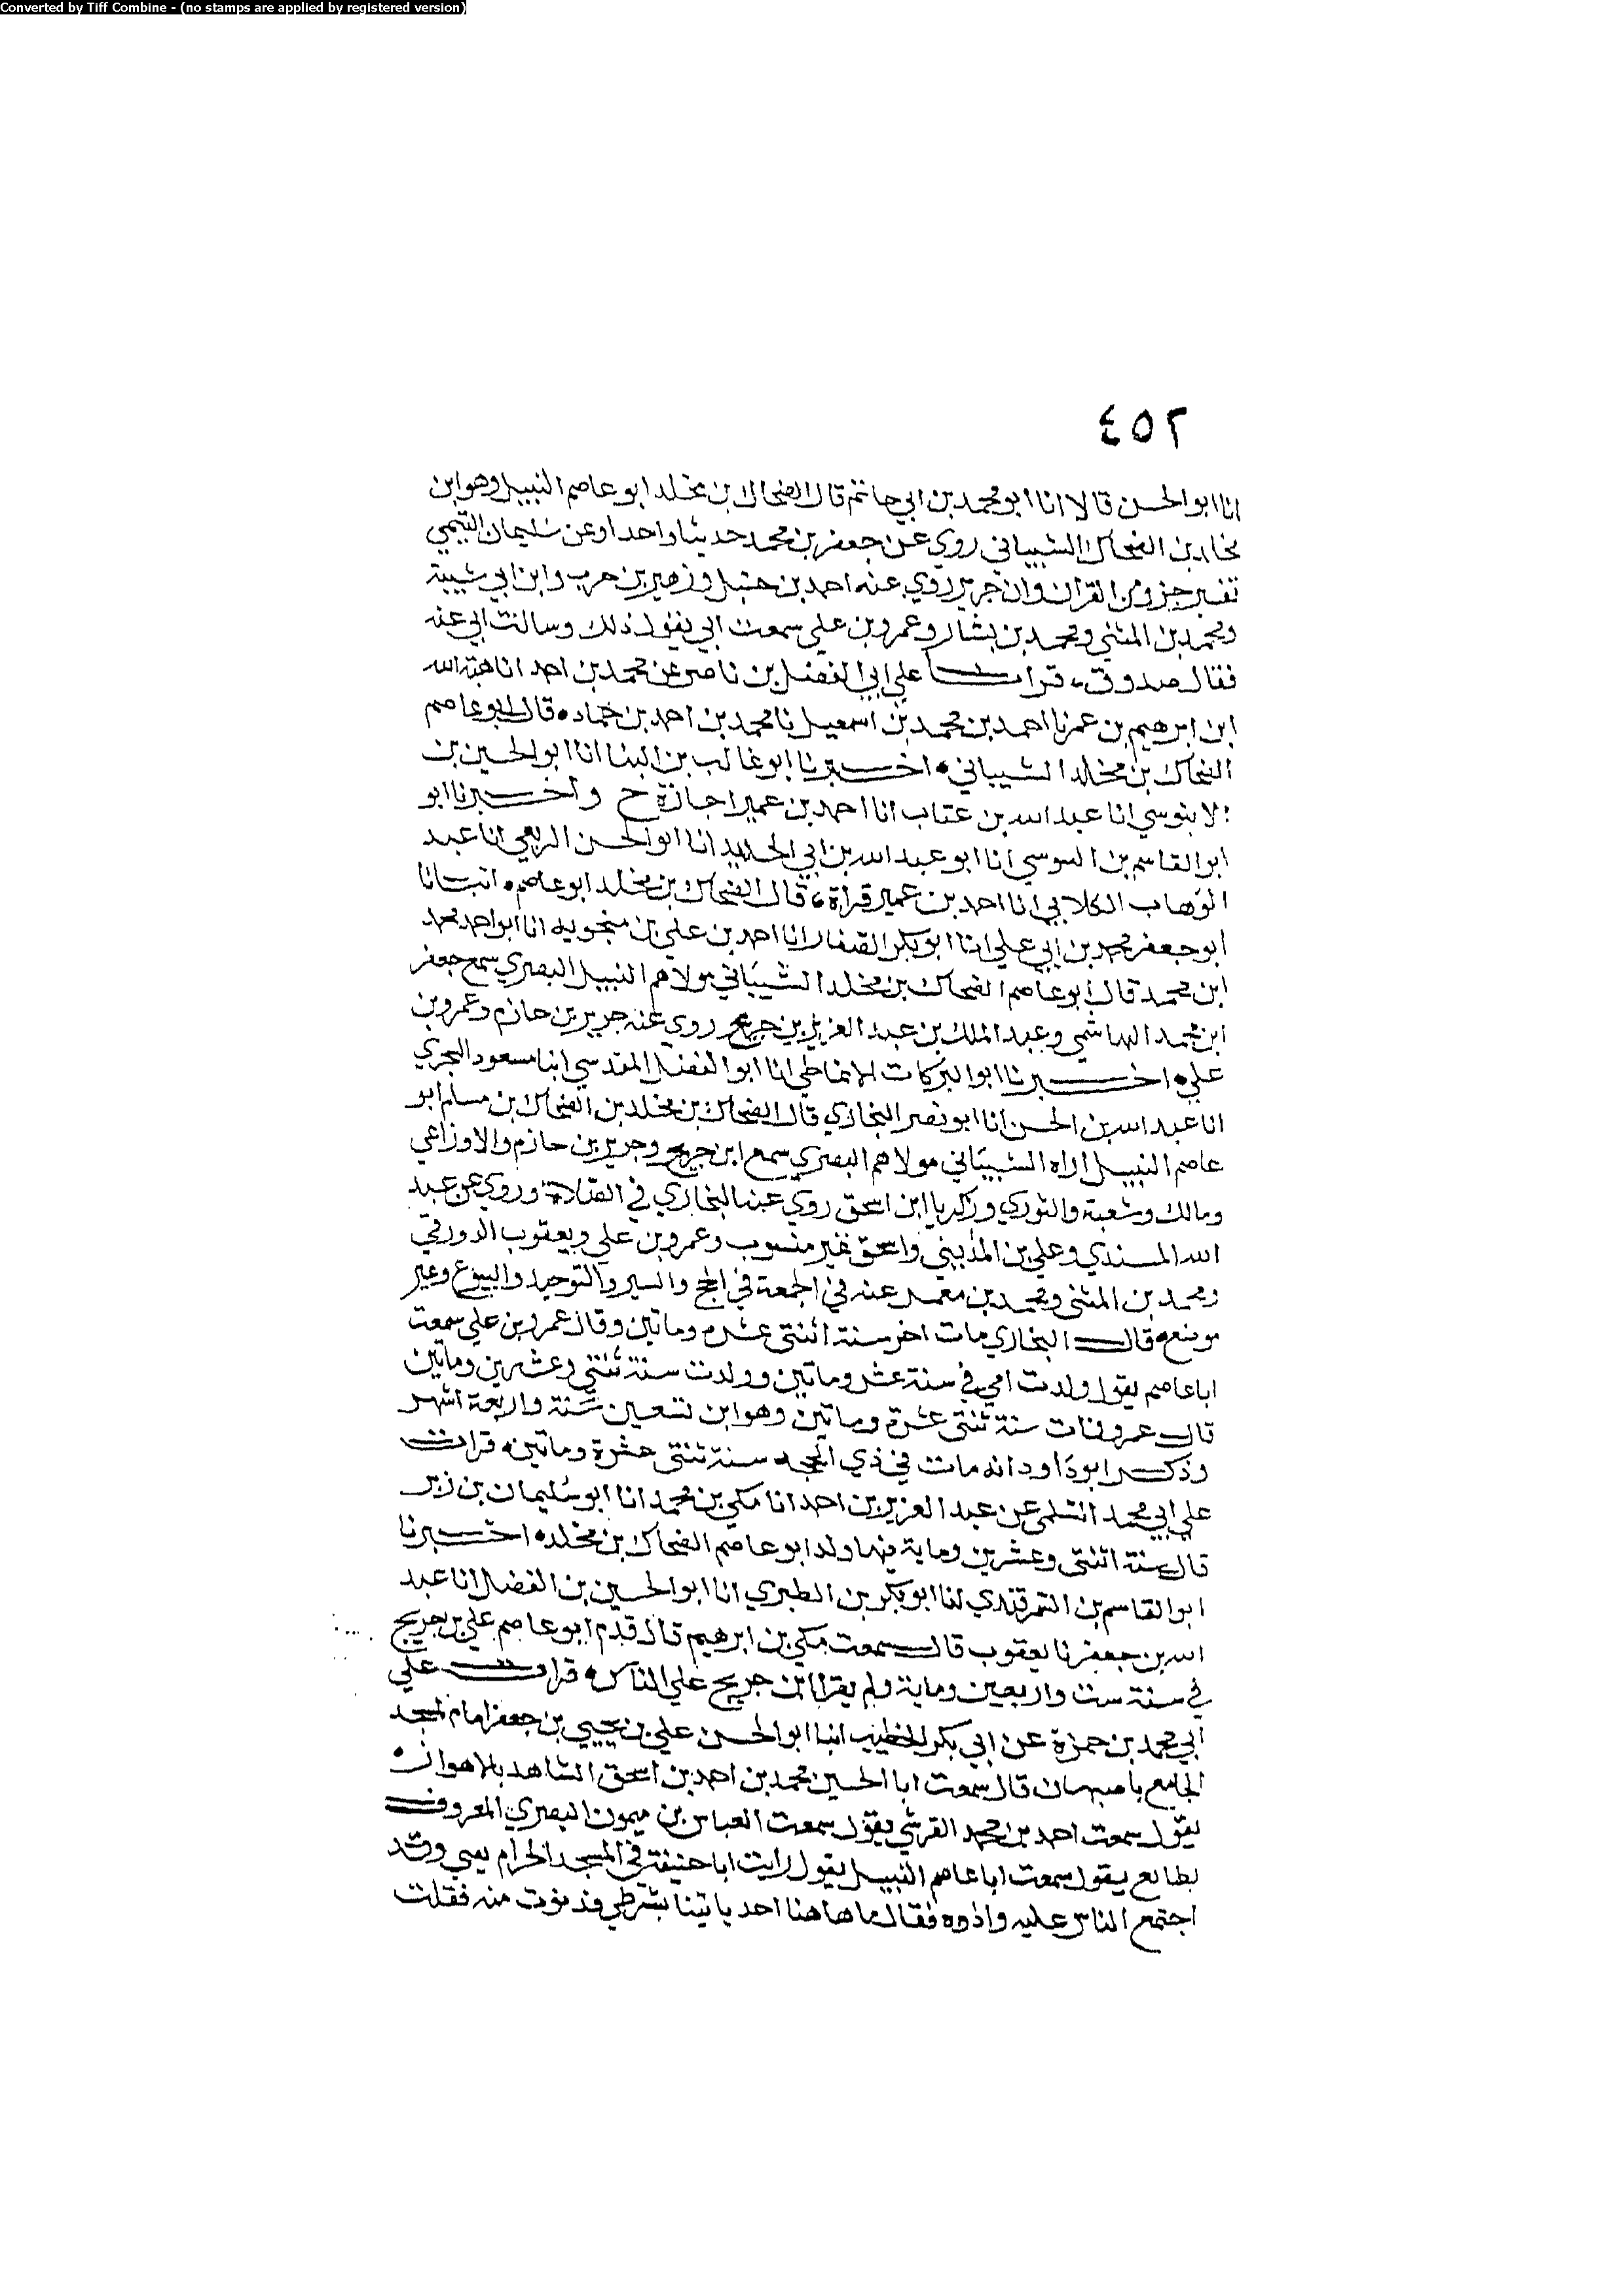 Converted by Tiff Combine - (no stamps are applied by registered version)
٤٥٢
انا ابو الحسن قالا انا ابو محمد بن ابي حاتم قال الضحاك بن مخلد ابو عاصم النبيل وهو ابن
مخلد بن الضحاك الشيباني روي عن جعفر بن محمد حديثا واحدا وعن سليمان التيمي
تفسير جزو من القران وابن جريج روي عنه احمد بن حنبل وزهير بن حرب وابن ابي شيبة
ومحمد بن المثني ومحمد بن بشار وعمرو بن علي سمعت ابي يقول ذلك وسالت ابي عنه
فقال صدوق، قرات علي ابي الفضل بن ناصر عن محمد بن احمد انا هبة الله
ابن ابرهيم بن عمر نا احمد بن محمد بن اسمعيل نا محمد بن احمد بن حماد ه قال ابو عاصم
الضحاك بن مخلد الشيباني ه اخبرنا ابو غالب بن البنا انا ابو الحسين بن
الابنوسي انا عبد الله بن عتاب انا احمد بن عمير اجازة ح واخبرنا ابو
ابو القاسم بن السوسي انا ابو عبد الله بن ابي الحديد انا ابو الحسن الربعي انا عبد
الوهاب الكلابي انا احمد بن عمير قراة، قال الضحاك بن مخلد ابو عاصم ه انبانا
ابو جعفر محمد بن ابي علي انا ابو بكر الصفار انا احمد بن علي بن منجويه انا ابو احمد محمد
ابن محمد قال ابو عاصم الضحاك بن مخلد الشيباني مولاهم النبيل البصري سمع جعفر
ابن محمد الهاشمي وعبد الملك بن عبد العزيز بن جريج روي عنه جرير بن حازم وعمرو بن
علي ه اخبرنا ابو البركات الانماطي انا ابو الفضل المقدسي ابنا مسعود السجزي
انا عبد الله بن الحسن انا ابو نصر البخاري قال الضحاك بن مخلد بن الضحاك بن مسلم ابو
عاصم النبيل اراه الشيباني مولاهم البصري سمع ابن جريج وجرير بن حازم والاوزاعي
ومالك وشعبة والثوري وزكريا ابن اسحق روي عنه البخاري في الصلاة وروي عن عبد
الله المسندي وعلي بن المديني واسحق غير منسوب وعمرو بن علي ويعقوب الدورقي
ومحمد بن المثني ومحمد بن معمر عنه في الجمعة في الحج والسير والتوحيد والبيوع وغير
موضع ه قال البخاري مات اخر سنة اثنتي عشره وماتين وقال عمرو بن علي سمعت
ابا عاصم يقول ولدت امي في سنة عشر وماتين وولدت سنة ثنتي وعشرين وماتين
قال عمرو فات سنة ثنتي عشرة وماتين وهو ابن تسعين سنة واربعة اشهر
وذكر ابو داود انه مات في ذي الحجه سنة ثنتي عشرة وماتين ه قرات
علي ابي محمد السلمي عن عبد العزيز بن احمد انا مكي بن محمد انا ابو سليمان بن زبر
قال سنة اثنتي وعشرين وماية فيها ولد ابو عاصم الضحاك بن مخلد ه اخبرنا
ابو القاسم بن السمرقندي انا ابو بكر بن الطبري انا ابو الحسين بن الفضل انا عبد
الله بن جعفر نا يعقوب قال سمعت مكي بن ابرهيم قال قدم ابو عاصم علي بن جريج
في سنة ست واربعين وماية ولم يقرا ابن جريج علي الناس ه قرات علي
ابي محمد بن حمزة عن ابي بكر الخطيب انبا ابو الحسن علي بن يحيي بن جعفر امام المسجد
الجامع باصبهان قال سمعت ابا الحسين محمد بن احمد بن اسحق الشاهد بالاهواز ه
يقول سمعت احمد بن محمد القرشي يقول سمعت العباس بن ميمون البصري المعروف
بطايع يقول سمعت ابا عاصم النبيل يقول رايت ابا حنيفة في المسجد الحرام يعني وقد
اجتمع الناس عليه واذوه فقال ما هاهنا احد ياتينا بشرطي فدنوت منه فقلت